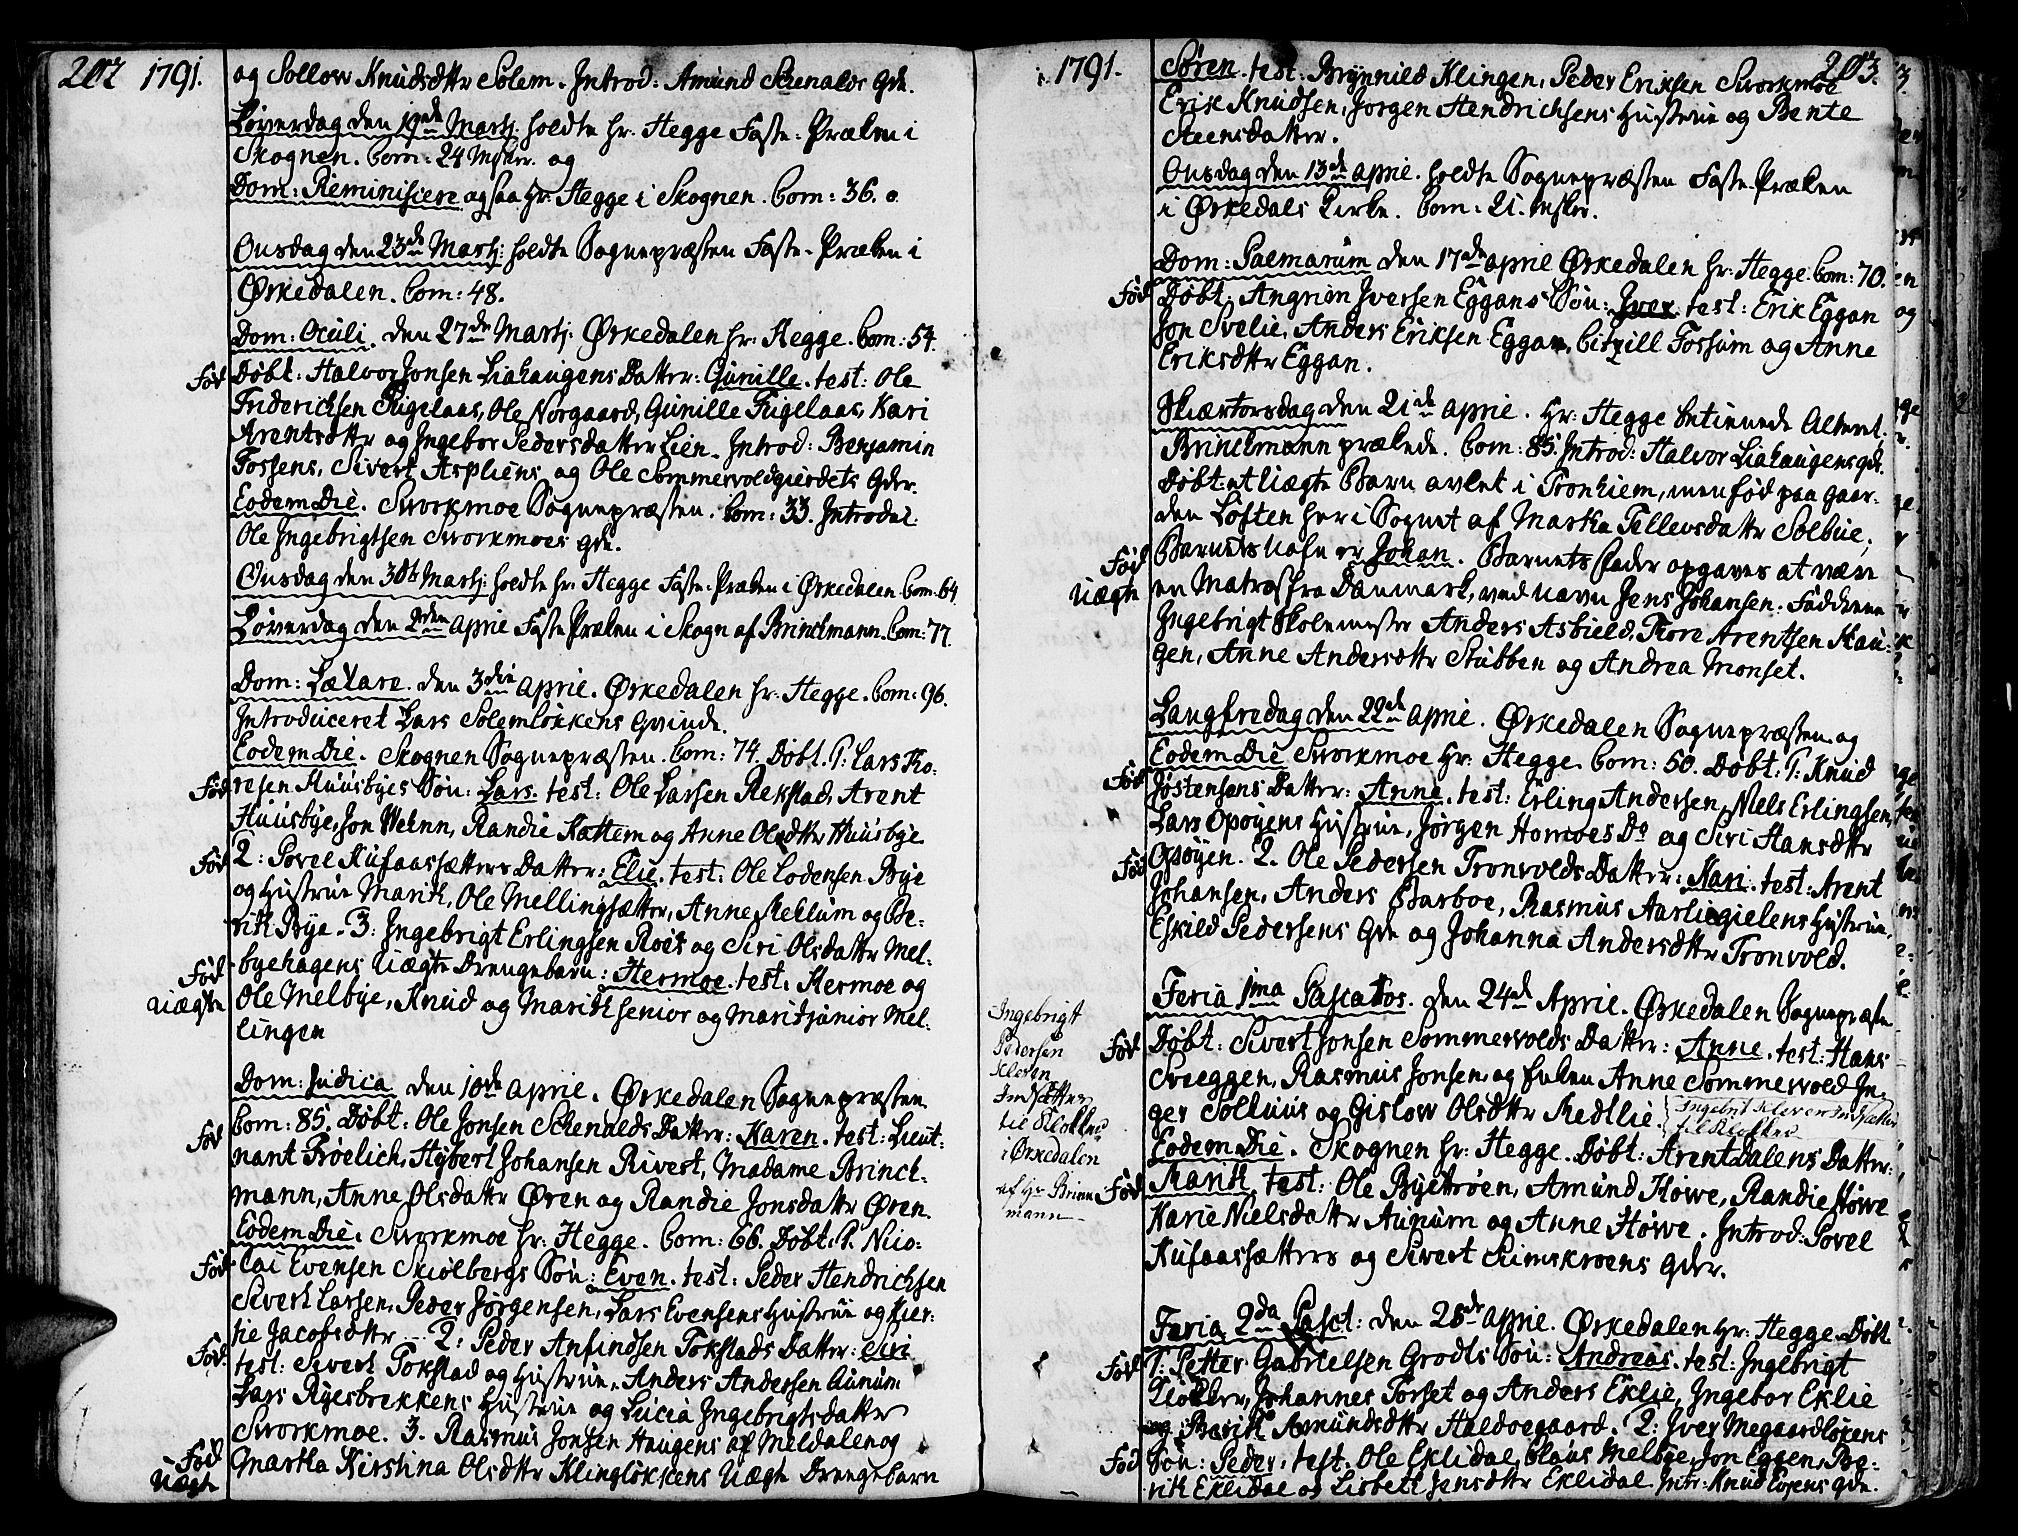 202 1791.
og Sollow Knudsdttr Solem. Introd: Amund Schenalds Qde.
Løverdag den 19de Martj: holdte hr: Hegge Faste-Præken i
Skognen. Com: 24 Mskr. og
Dom: Reminiscere ogsaa hr: Hegge i Skognen. Com: 36.
Onsdag den 23de Martj: holdte Sognepræsten Faste-Præken i
Ørkedalen. Com: 48.
Dom: Oculi. den 27de Martj: Ørkedalen hr: Hegge. Com: 54.
Fød Døbt: Halvor Jonsen Liahaugens Datter: Gunille. test: Ole
Friderichsen Fugelaas, Ole Norgaard, Gunille Fugelaas, Kari
Arentsdttr og Ingebor Pedersdatter Lien. Introd: Benjamin
Fossens, Sivert Aspliens og Ole Sommervoldgierdets Qder.
Eodem Die. Svorkmoe Sognepræsten. Com: 33. Introdul:
Ole Ingebrigtsen Svorkmoes Qde.
Onsdag den 30te Martj: holdte hr: Hegge Faste-Præken i Ørkedalen Com: 64.
Løverdag den 2den Aprie Faste Præken i Skogn af Brinckmann. Com: 77.
Dom: Lætare. den 3die Aprie. Ørkedalen hr: Hegge. Com: 96.
Introduceret Lars Solemløkkens Qvinde.
Eodem Die. Skognen Sognepræsten. Com: 74. Døbt. 1: Lars To-
Fød resen Huusbyes Søn: Lars. test: Ole Larsen Rekstad, Arent
Huusbye, Jon Weknn, Randie Kattem og Anne Olsdttr Huusbye
Fød 2: Povel Kufaassætters Datter: Elie. test: Ole Lodensen Bye
og Hustrue Marit, Ole Mellingsætter, Anne Meklum og Be-
rith Bye. 3: Ingebrigt Erlingsen Roes og Siri Olsdatter Mel-
Fød byehagens Uægte Drengebarn: Hermoe. test: Hermoe og
Uægte Ole Melbye, Knud og Marith senior og Marit junior Mel-
lingen
Dom: Judica den 10de Aprie. Ørkedalen Sognepræsten
Fød Com: 85. Døbt: Ole Jonsen Schenalds Datter: Karen. test: Lieut-
nant Frøelich, Hybert Johansen Rivert, Madame Brinck-
mann, Anne Olsdattr Øren og Randie Jonsdattr Øren.
Eodem Die: Svorkmoe hr: Hegge. Com: 66. Døbt: 1. Nico-
Fød lai Evensen Skiølbergs Søn: Even. test: Peder Hendrichsen
Sivert Larsen, Peder Jørgensen, Lars Evensens Hustrue og Kier-
Fød. tie Jacobsdttr. 2: Peder Anfindsen Tokstads Datter: Siri
test: Sivert Tokstad og Hustrue, Anders Andersen Aunum
Lars Ryesbrekkens Hustrue og Lucia Ingebrigtsdatter
Svorkmoe. 3. Rasmus Jonsen Haugens af Meldalen og
Fød Uægte Martha Kirstina Olsdttr Klingløkkens Uægte Drengebarn
1791. 203.
Søren. test: Brynnild Klingen, Peder Eriksen Svorkmoe
Erik Knudsen, Jørgen Hendrichsens Hustrue og Bente
Steensdatter.
Onsdag den 13de Aprie. holdte Sognepræsten Faste-Præken
i Ørkedals Kirke. Com: 21. Mskr.
Dom: Palmarum den 17de Aprie Ørkedalen hr: Hegge. Com: 70.
Fød Døbt, Angrim Iversen Eggans Søn: Iver. test: Erik Eggan
Jon Svelie, Anders Eriksen Eggan, Citzill Fossum og Anne
Eriksdttr Eggan.
Skiærtorsdag den 21de Aprie. Hr: Hegge betienede Alteret.
Brinckmann prækede. Com: 85. Introd: Halvor Liahaugens Qde.
Døbt: et Uægte Barn avlet i Tronhiem, men fød paa Gaar-
den Loften her i Sognet af Martha Tellevsdattr Solbue,
Fød Barnets Nafn er Johan. Barnets Fader opgaves at være
Uægte en Matros fra Danmark, ved navn Jens Johansen. Faddrene
Ingebrigt Skolemester Anders Asbield, Thore Arentsen Hau-
gen, Anne Andersdttr Stubben og Andrea Monset.
Langfredag den 22de Aprie. Ørkedalen Sognepræsten og
Eodem Die Svorkmoe Hr: Hegge. Com: 50. Døbt: 1: Knud
Fød Jøstensens Datter: Anne. test: Erling Andersen, Niels Erlingsen,
Lars Opøyens Hustrue, Jørgen Homoes Do og Siri Hansdttr
Fød Opøyen. 2. Ole Pedersen Tronvolds Datter: Kari. test: Arent
Johansen, Anders Barboe, Rasmus Aarliegielens Hustrue,
Eskild Pedersens Qde og Johanna Andersdttr Tronvold.
Feria 1ma Paschatos. den 24de April. Ørkedalen Sognepræste
Fød Døbt: Sivert Jonsen Sommervolds Datter: Anne. test: Hans
Sveeggen, Rasmus Jonsen, og Anne Sommervold In-
ger Solhuus og Gislow Olsdttr Medlie.
Ingebrt Kleven Indsatter til Klokker
Ingebrigt
Pedersen
Kleven
Indsatter
til Klokker
i Ørkedalen
af Hr Brinc
mann
Eodem Die. Skognen hr: Hegge. Døbt: Arent Dalens Datter:
Fød Marith. test: Ole Byetrøen, Amund Howe, Randie Howe
Karie Nielsdattr Aunum og Anne Howe. Introd: Povel
Kufaassætters og Sivert Rimskroens Qder.
Feria 2da Pasch: den 25de Aprie. Ørkedalen Hr: Hegge. Døbt
Fød 1: Petter Gabrielsen Grodts Søn: Andreas. test: Ingebrigt
Klokker, Johannes Forset og Anders Eklie, Ingebor Eklie
og Berith Amundsdttr Haldoegaard. 2: Iver Megaardløkens
Fød Søn: Peder. test. Ole Eklidal, Claus Melbye, Jon Eggen, Be-
rit Eklidal og Lisbeth Jensdttr Eklidal. Intr: Knud Egens Qde.